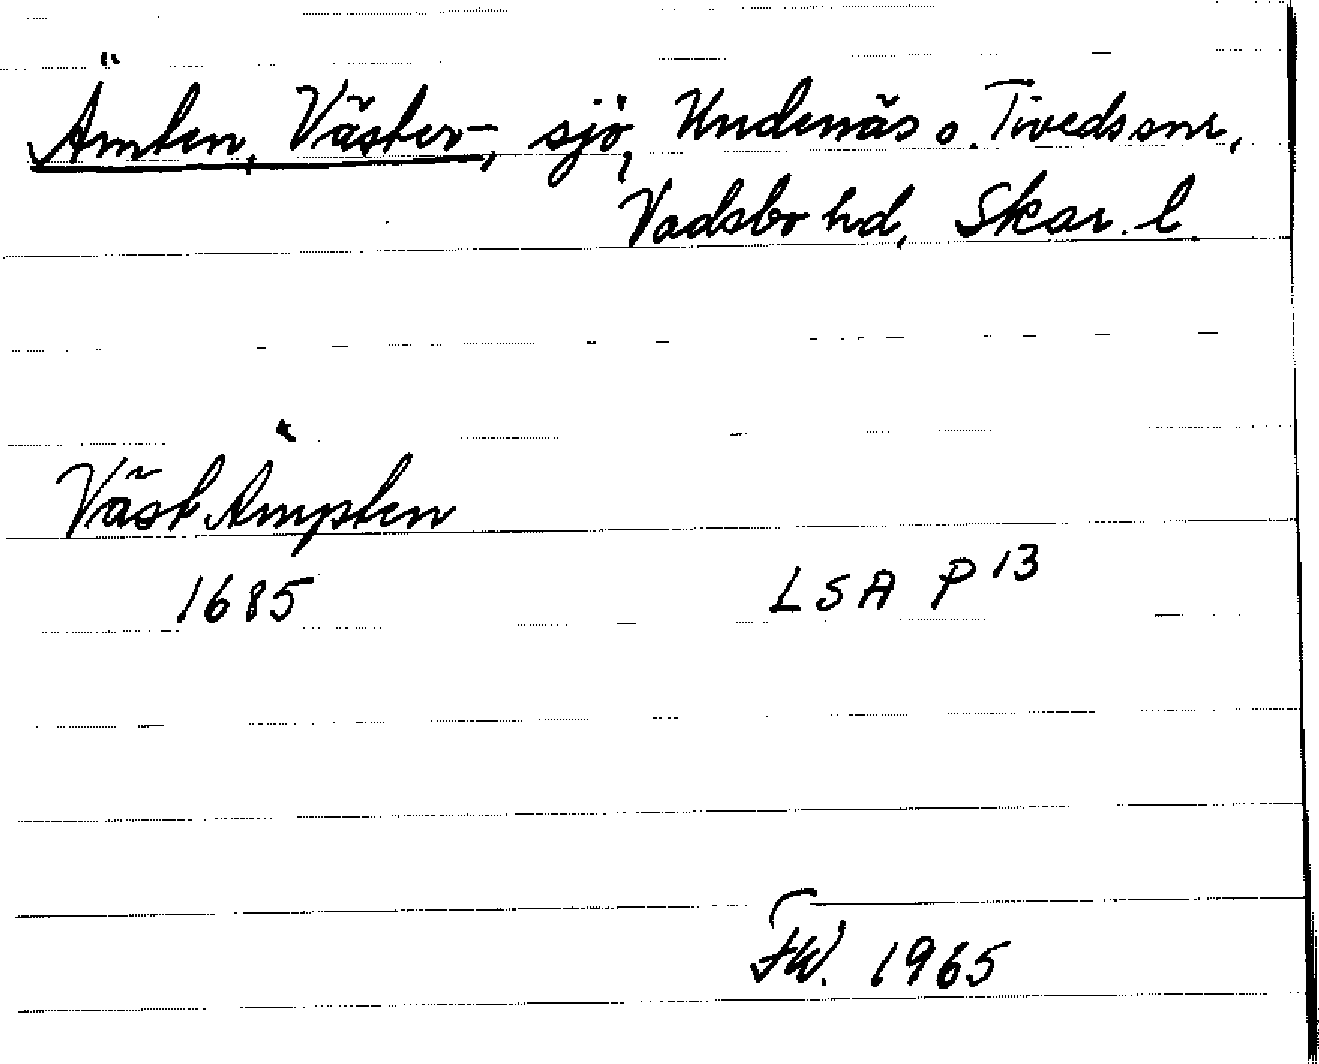 Ämten, Väster-, sjö, Undenäs o. Tiveds snr,
Vadsbo hd, Skar. l.
Väst Ämpten
1685 LSA P 13
FW. 1965